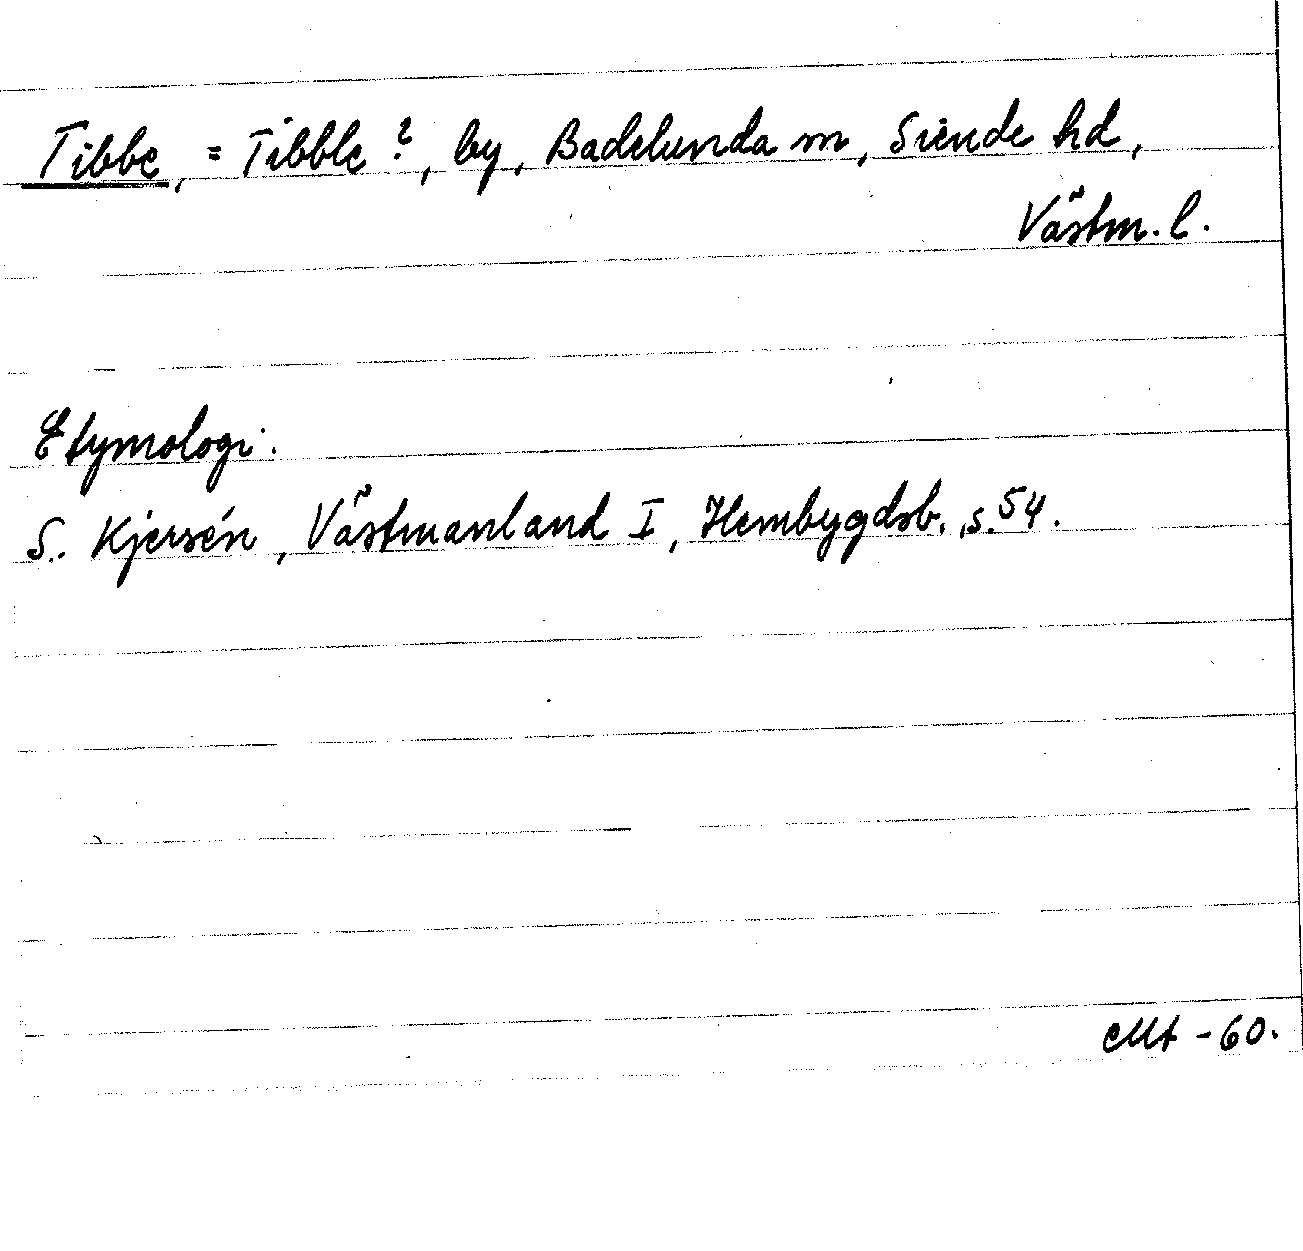 Tibbe, = Tibble?, by, Badelunda sn, Siende hd,
Västm. l.
Etymologi:
S. Kjersén, Västmanland I, Hembygdsb., s. 54.
-60.